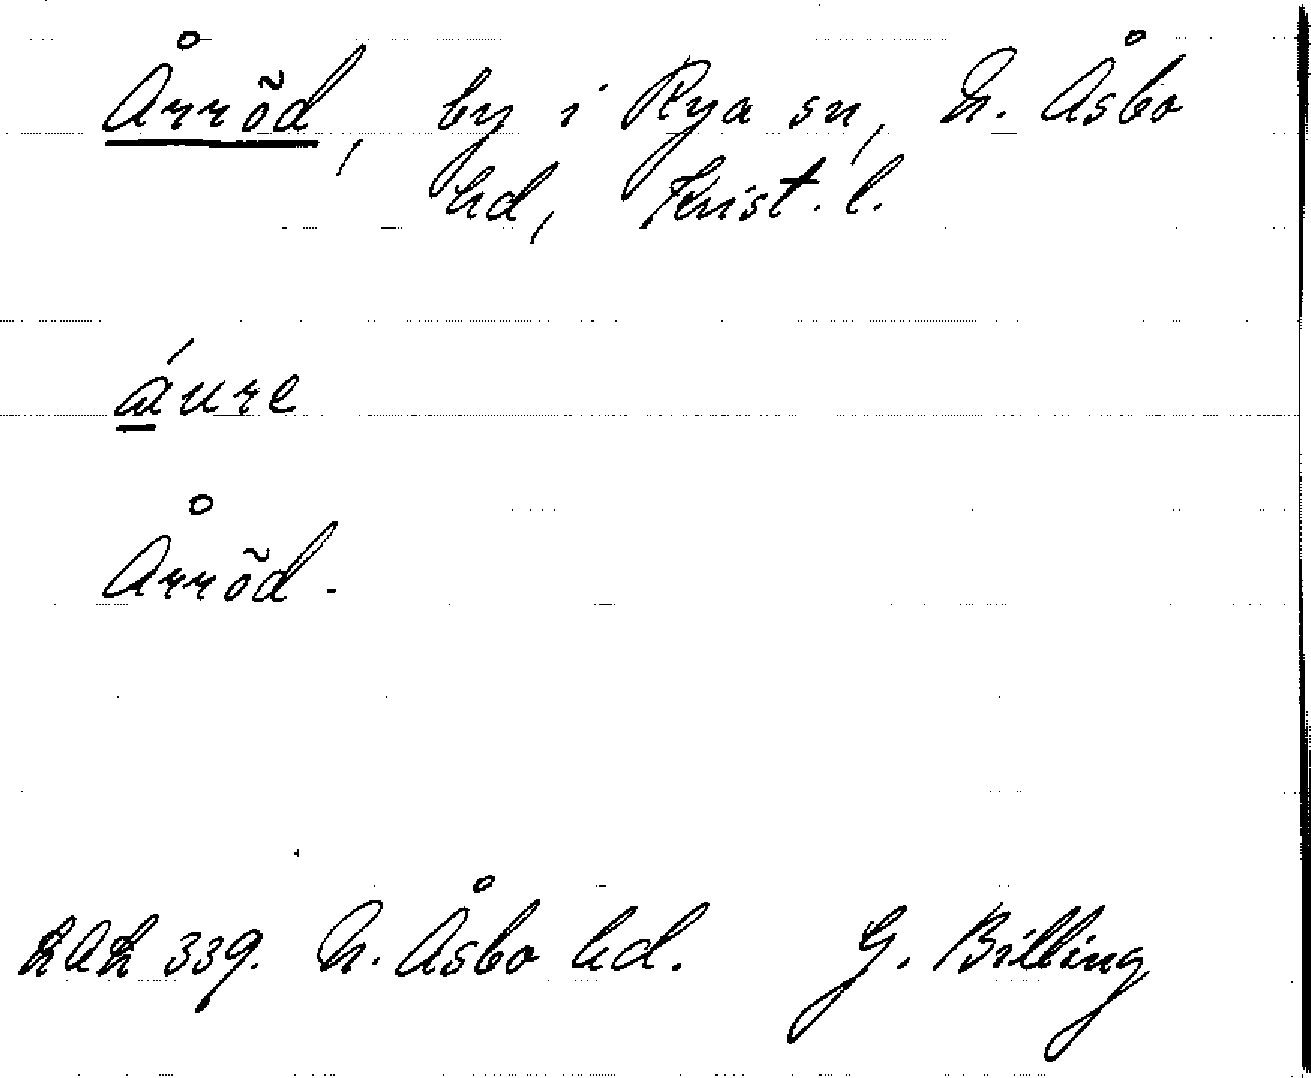 Årröd, by i Rya sn, N. Åsbo
hd, Krist. l.
áure
Årröd.
LAL 339. N. Åsbo hd. G. Billing